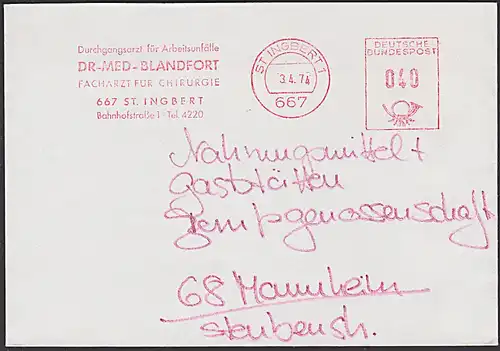 Durchgangsarzt für Arbeitsunfälle
DR-MED-BLANDFORT
FACHARZT FÜR CHIRURGIE
667 ST. INGBERT
Bahnhofstraße 1 · Tel. 4220
ST INGBERT 1
3.4.74
667
DEUTSCHE
BUNDESPOST
040
Nahrungsmittel +
Gaststätten
genossenschaft
68 Mannheim
Steubenstr.